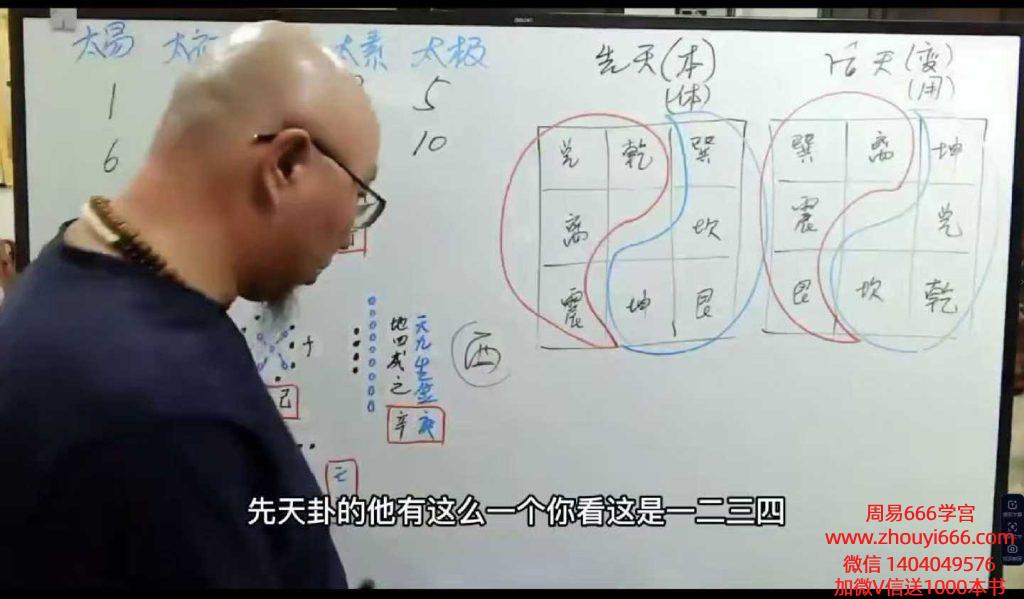 太易 太 太素 太极
1 5
6 10
先天(本)
(体)
后天(变)
(用)
兑 乾 巽
离 坎
震 坤 艮
巽 离 坤
震 兑
艮 坎 乾
十
己
地四成之
天九生金
辛 庚
西
先天卦的他有这么一个你看这是一二三四
周易666学宫
www.zhouyi666.com
微信 1404049576
加微V信送1000本书